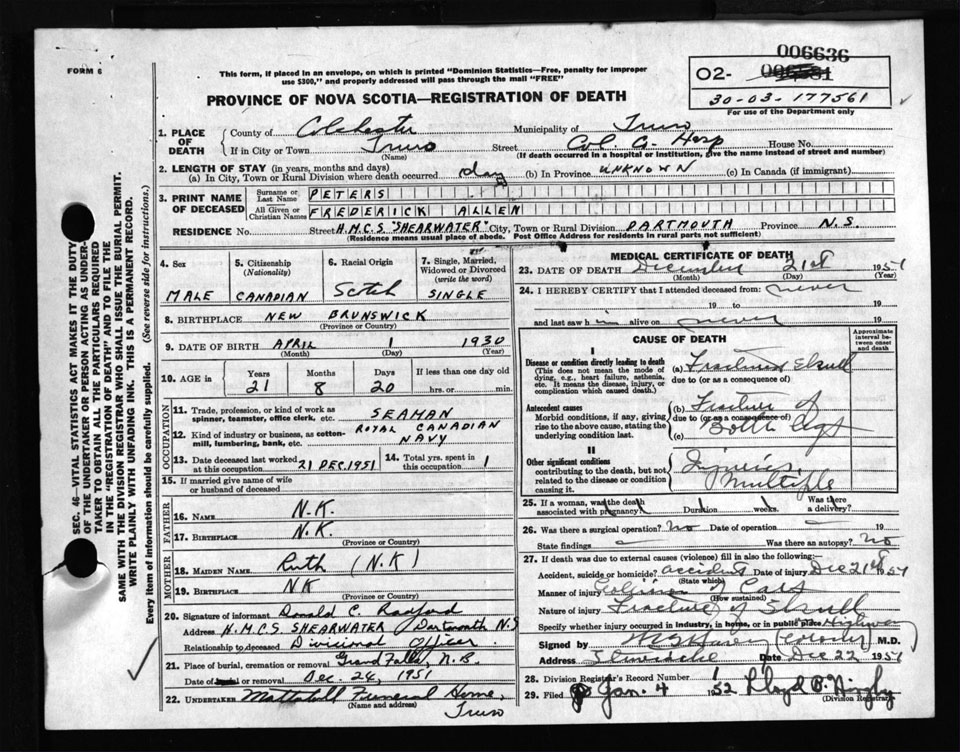 FORM 6
This form, if placed in an envelope, on which is printed "Dominion Statistics—Free, penalty for improper use $300," and properly addressed will pass through the mail "FREE"
006636
02-
30-03-177561
For use of the Department only
PROVINCE OF NOVA SCOTIA—REGISTRATION OF DEATH
1. PLACE OF DEATH County of Colchester Municipality of Truro
If in City or Town Truro (Name) Street Col. Co. Hosp House No.
(If death occurred in a hospital or institution, give the name instead of street and number)
2. LENGTH OF STAY (in years, months and days)
(a) In City, Town or Rural Division where death occurred day (b) In Province UNKNOWN (c) In Canada (if immigrant)
3. PRINT NAME OF DECEASED Surname or Last Name PETERS
All Given or Christian Names FREDERICK ALLEN
RESIDENCE No. Street H.M.C.S "SHEARWATER" City, Town or Rural Division DARTMOUTH Province N.S.
(Residence means usual place of abode. Post Office Address for residents in rural parts not sufficient)
4. Sex MALE
5. Citizenship (Nationality) CANADIAN
6. Racial Origin Scotch
7. Single, Married, Widowed or Divorced (write the word) SINGLE
8. BIRTHPLACE NEW BRUNSWICK
(Province or Country)
9. DATE OF BIRTH APRIL 1 1930
(Month) (Day) (Year)
10. AGE in Years 21 Months 8 Days 20 If less than one day old hrs. or min.
OCCUPATION
11. Trade, profession, or kind of work as spinner, teamster, office clerk, etc. SEAMAN
12. Kind of industry or business, as cotton-mill, lumbering, bank, etc. ROYAL CANADIAN NAVY
13. Date deceased last worked at this occupation 21 DEC. 1951
14. Total yrs. spent in this occupation 1
15. If married give name of wife or husband of deceased
FATHER
16. NAME N.K.
17. BIRTHPLACE N.K.
(Province or Country)
MOTHER
18. MAIDEN NAME Ruth (N.K)
19. BIRTHPLACE NK
(Province or Country)
20. Signature of informant Ronald C. Radford
Address H.M.C.S SHEARWATER Dartmouth N.S
Relationship to deceased Divisional Officer
21. Place of burial, cremation or removal Grand Falls, N.B.
Date of burial or removal Dec. 24, 1951
22. UNDERTAKER Mattatall Funeral Home, Truro
(Name and address)
MEDICAL CERTIFICATE OF DEATH
23. DATE OF DEATH December 21st 1951
(Month) (Day) (Year)
24. I HEREBY CERTIFY that I attended deceased from: never
19 to 19
and last saw him alive on never 19
CAUSE OF DEATH
Approximate interval between onset and death
I
Disease or condition directly leading to death (This does not mean the mode of dying, e.g., heart failure, asthenia, etc. It means the disease, injury, or complication which caused death.)
(a) Fractured Skull
due to (or as a consequence of)
Antecedent causes
Morbid conditions, if any, giving rise to the above cause, stating the underlying condition last.
(b) Fracture of
due to (or as a consequence of)
(c) Both legs
II
Other significant conditions contributing to the death, but not related to the disease or condition causing it.
Injuries, multiple
25. If a woman, was the death associated with pregnancy? Duration weeks. Was there a delivery?
26. Was there a surgical operation? No Date of operation 19
State findings Was there an autopsy? No
27. If death was due to external causes (violence) fill in also the following:
Accident, suicide or homicide? accident Date of injury Dec 21st 1951
(State which)
Manner of injury Collision of Cars
(How sustained)
Nature of injury Fracture of Skull
Specify whether injury occurred in industry, in home, or in public place Highway
Signed by (Coroner) M.D.
Address Date Dec 22 1951
28. Division Registrar's Record Number 1
29. Filed Jan. 4 1952 Lloyd
(Division Registrar)
SEC. 46—VITAL STATISTICS ACT MAKES IT THE DUTY
OF THE UNDERTAKER OR PERSON ACTING AS UNDER-
TAKER TO OBTAIN ALL THE PARTICULARS REQUIRED
IN THE "REGISTRATION OF DEATH" AND TO FILE THE
SAME WITH THE DIVISION REGISTRAR WHO SHALL ISSUE THE BURIAL PERMIT.
WRITE PLAINLY WITH UNFADING INK. THIS IS A PERMANENT RECORD.
Every item of information should be carefully supplied. (See reverse side for instructions.)